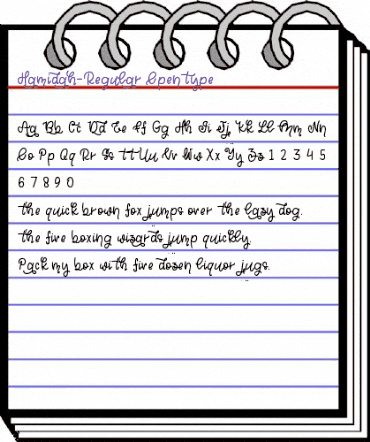 Hamidah-Regular OpenType
Aa Bb Cc Dd Ee Ff Gg Hh Ii Jj Kk Ll Mm Nn
Oo Pp Qq Rr Ss Tt Uu Vv Ww Xx Yy Zz 1 2 3 4 5
6 7 8 9 0
the quick brown fox jumps over the lazy dog.
the five boxing wizards jump quickly.
Pack my box with five dozen liquor jugs.